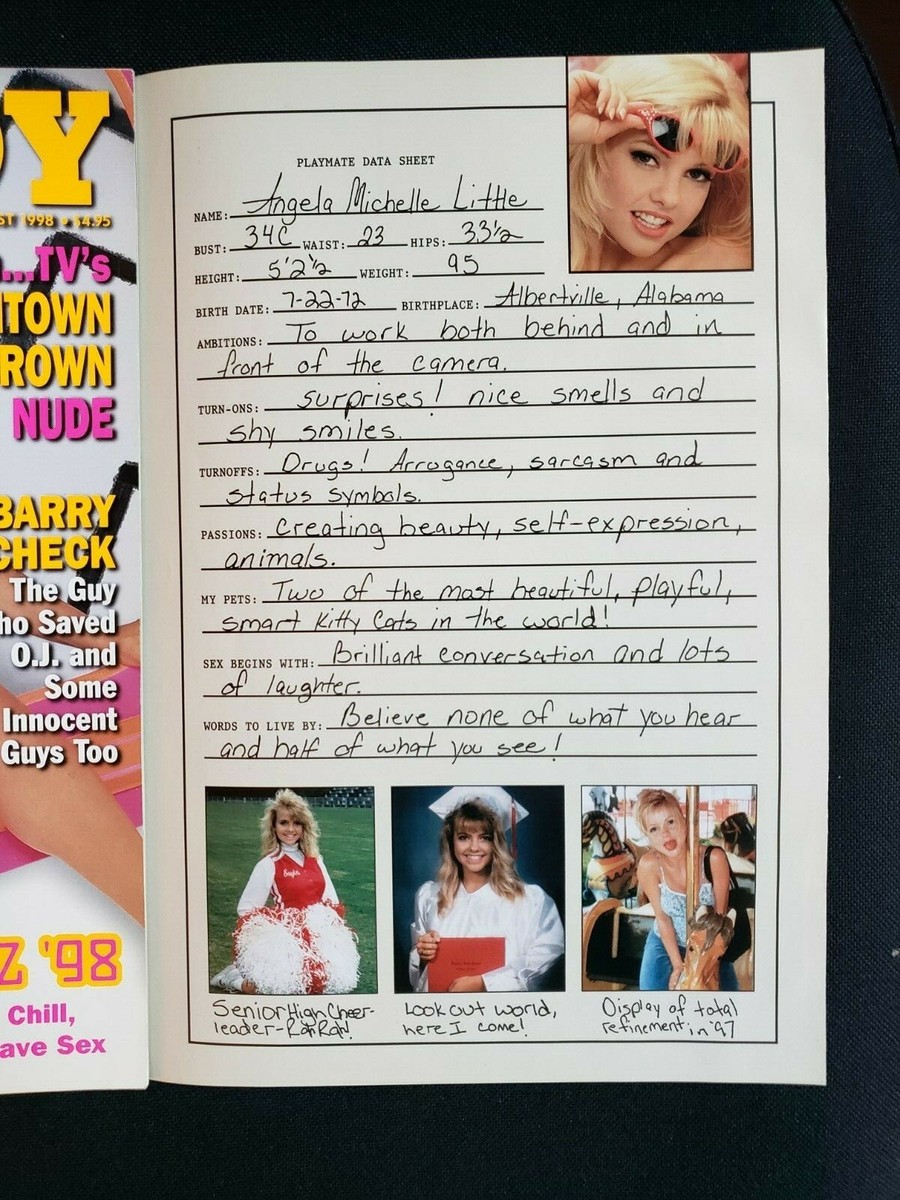 Y
ST 1998 • $4.95
...TV's
TOWN
ROWN
NUDE
BARRY
CHECK
The Guy
ho Saved
O.J. and
Some
Innocent
Guys Too
Z '98
Chill,
ave Sex
PLAYMATE DATA SHEET
NAME: Angela Michelle Little
BUST: 34C WAIST: 23 HIPS: 33½
HEIGHT: 5'2½ WEIGHT: 95
BIRTH DATE: 7-22-72 BIRTHPLACE: Albertville, Alabama
AMBITIONS: To work both behind and in
front of the camera.
TURN-ONS: surprises! nice smells and
shy smiles.
TURNOFFS: Drugs! Arrogance, sarcasm and
status symbols.
PASSIONS: creating beauty, self-expression,
animals.
MY PETS: Two of the most beautiful, playful,
smart Kitty Cats in the world!
SEX BEGINS WITH: Brilliant conversation and lots
of laughter.
WORDS TO LIVE BY: Believe none of what you hear
and half of what you see!
Senior High Cheer-
leader-Rah Rah!
Look out world,
here I come!
Display of total
refinement in '97